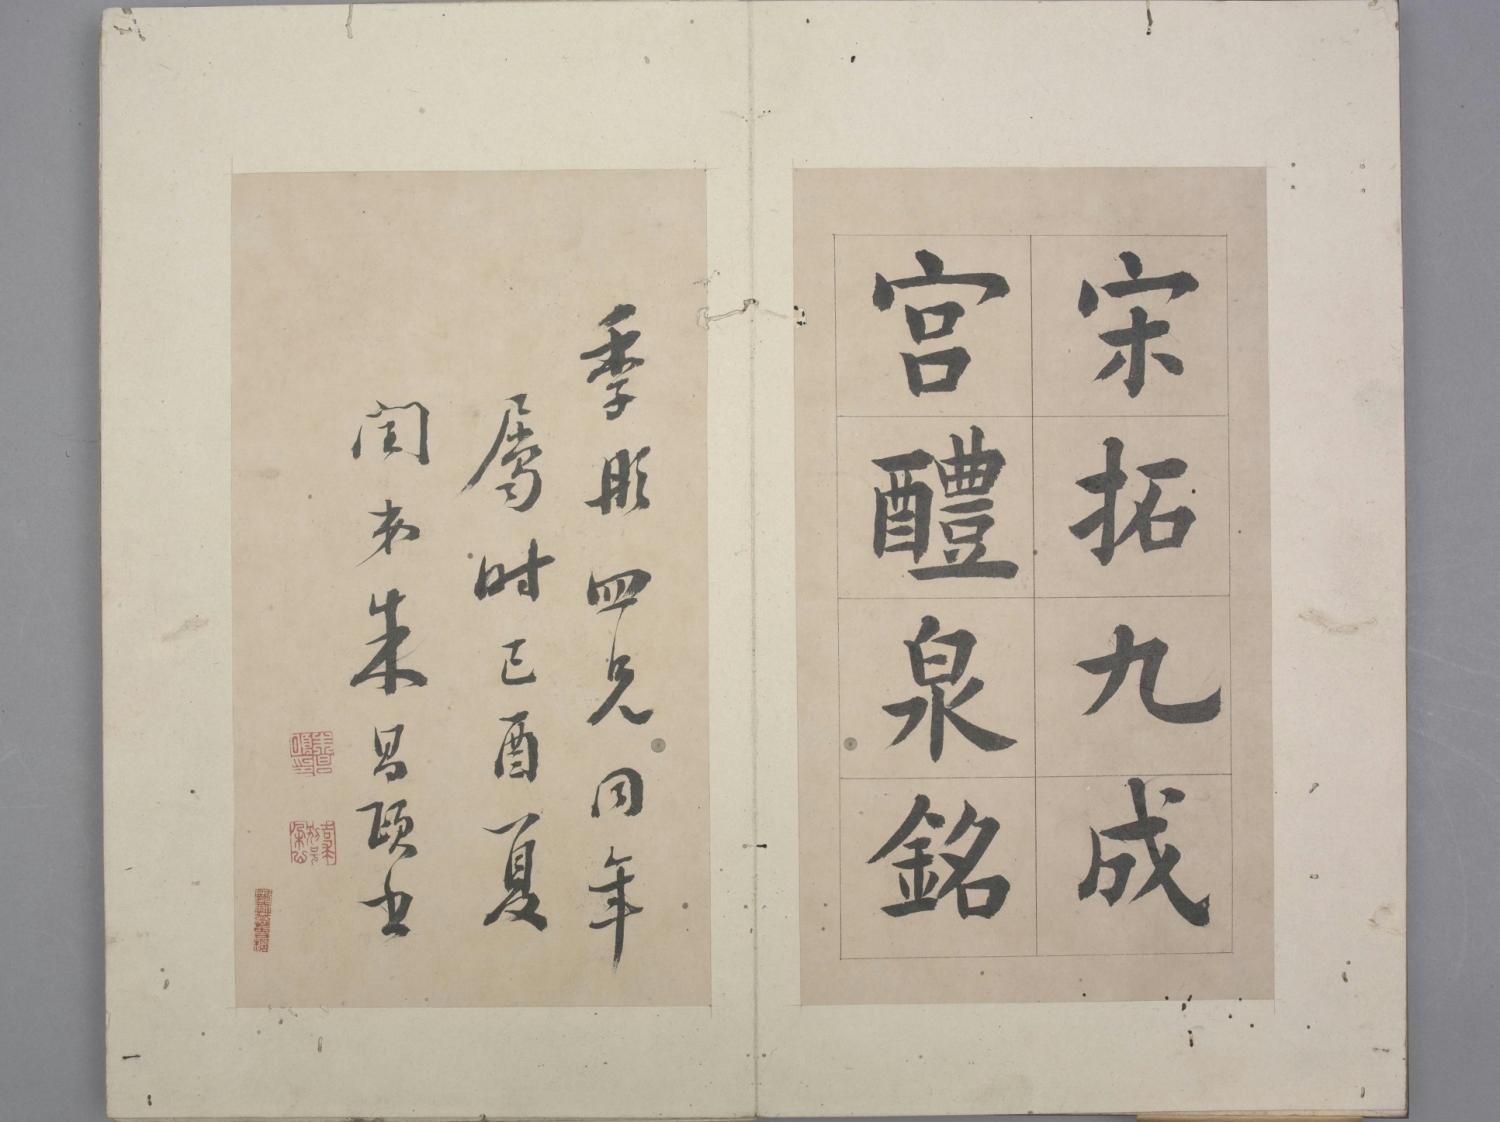 宋拓九成
宮醴泉銘
季彤四兄同年
属時己酉夏
閏弟朱昌頤書